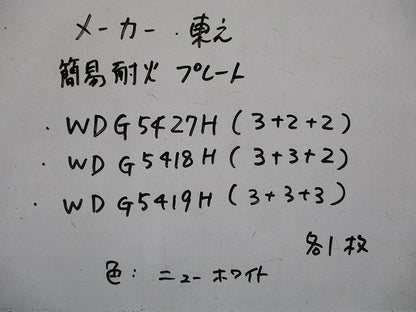 メーカー . 東芝
簡易耐火 プレート
・WDG5427H(3+2+2)
・WDG5418H(3+3+2)
・WDG5419H(3+3+3)
各1枚
色: ニューホワイト